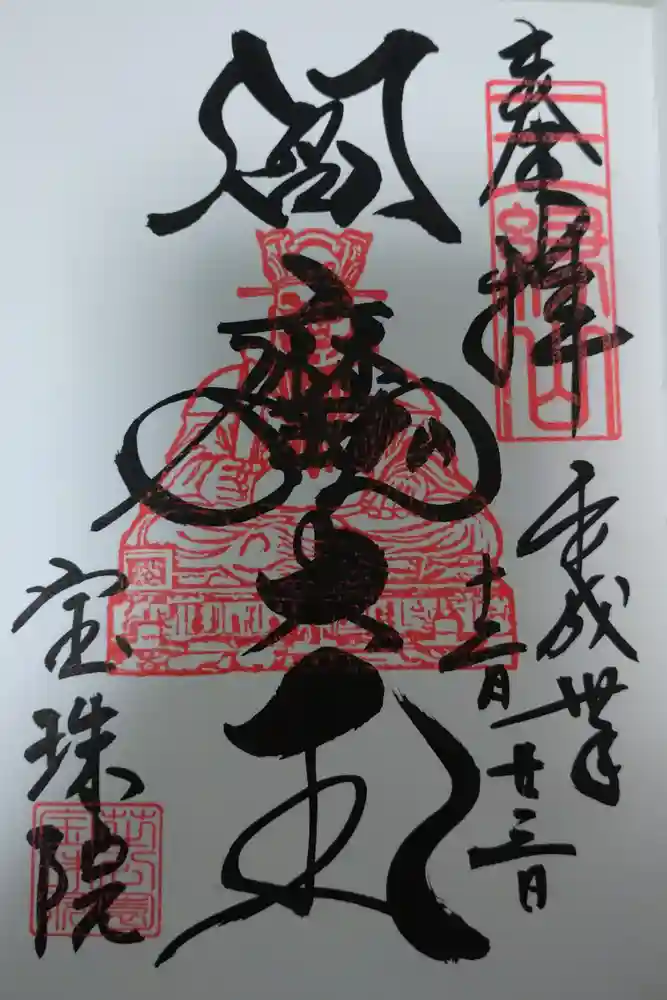 奉拝
三縁山
平成卅年
十二月廿三日
閻魔大王
宝珠院